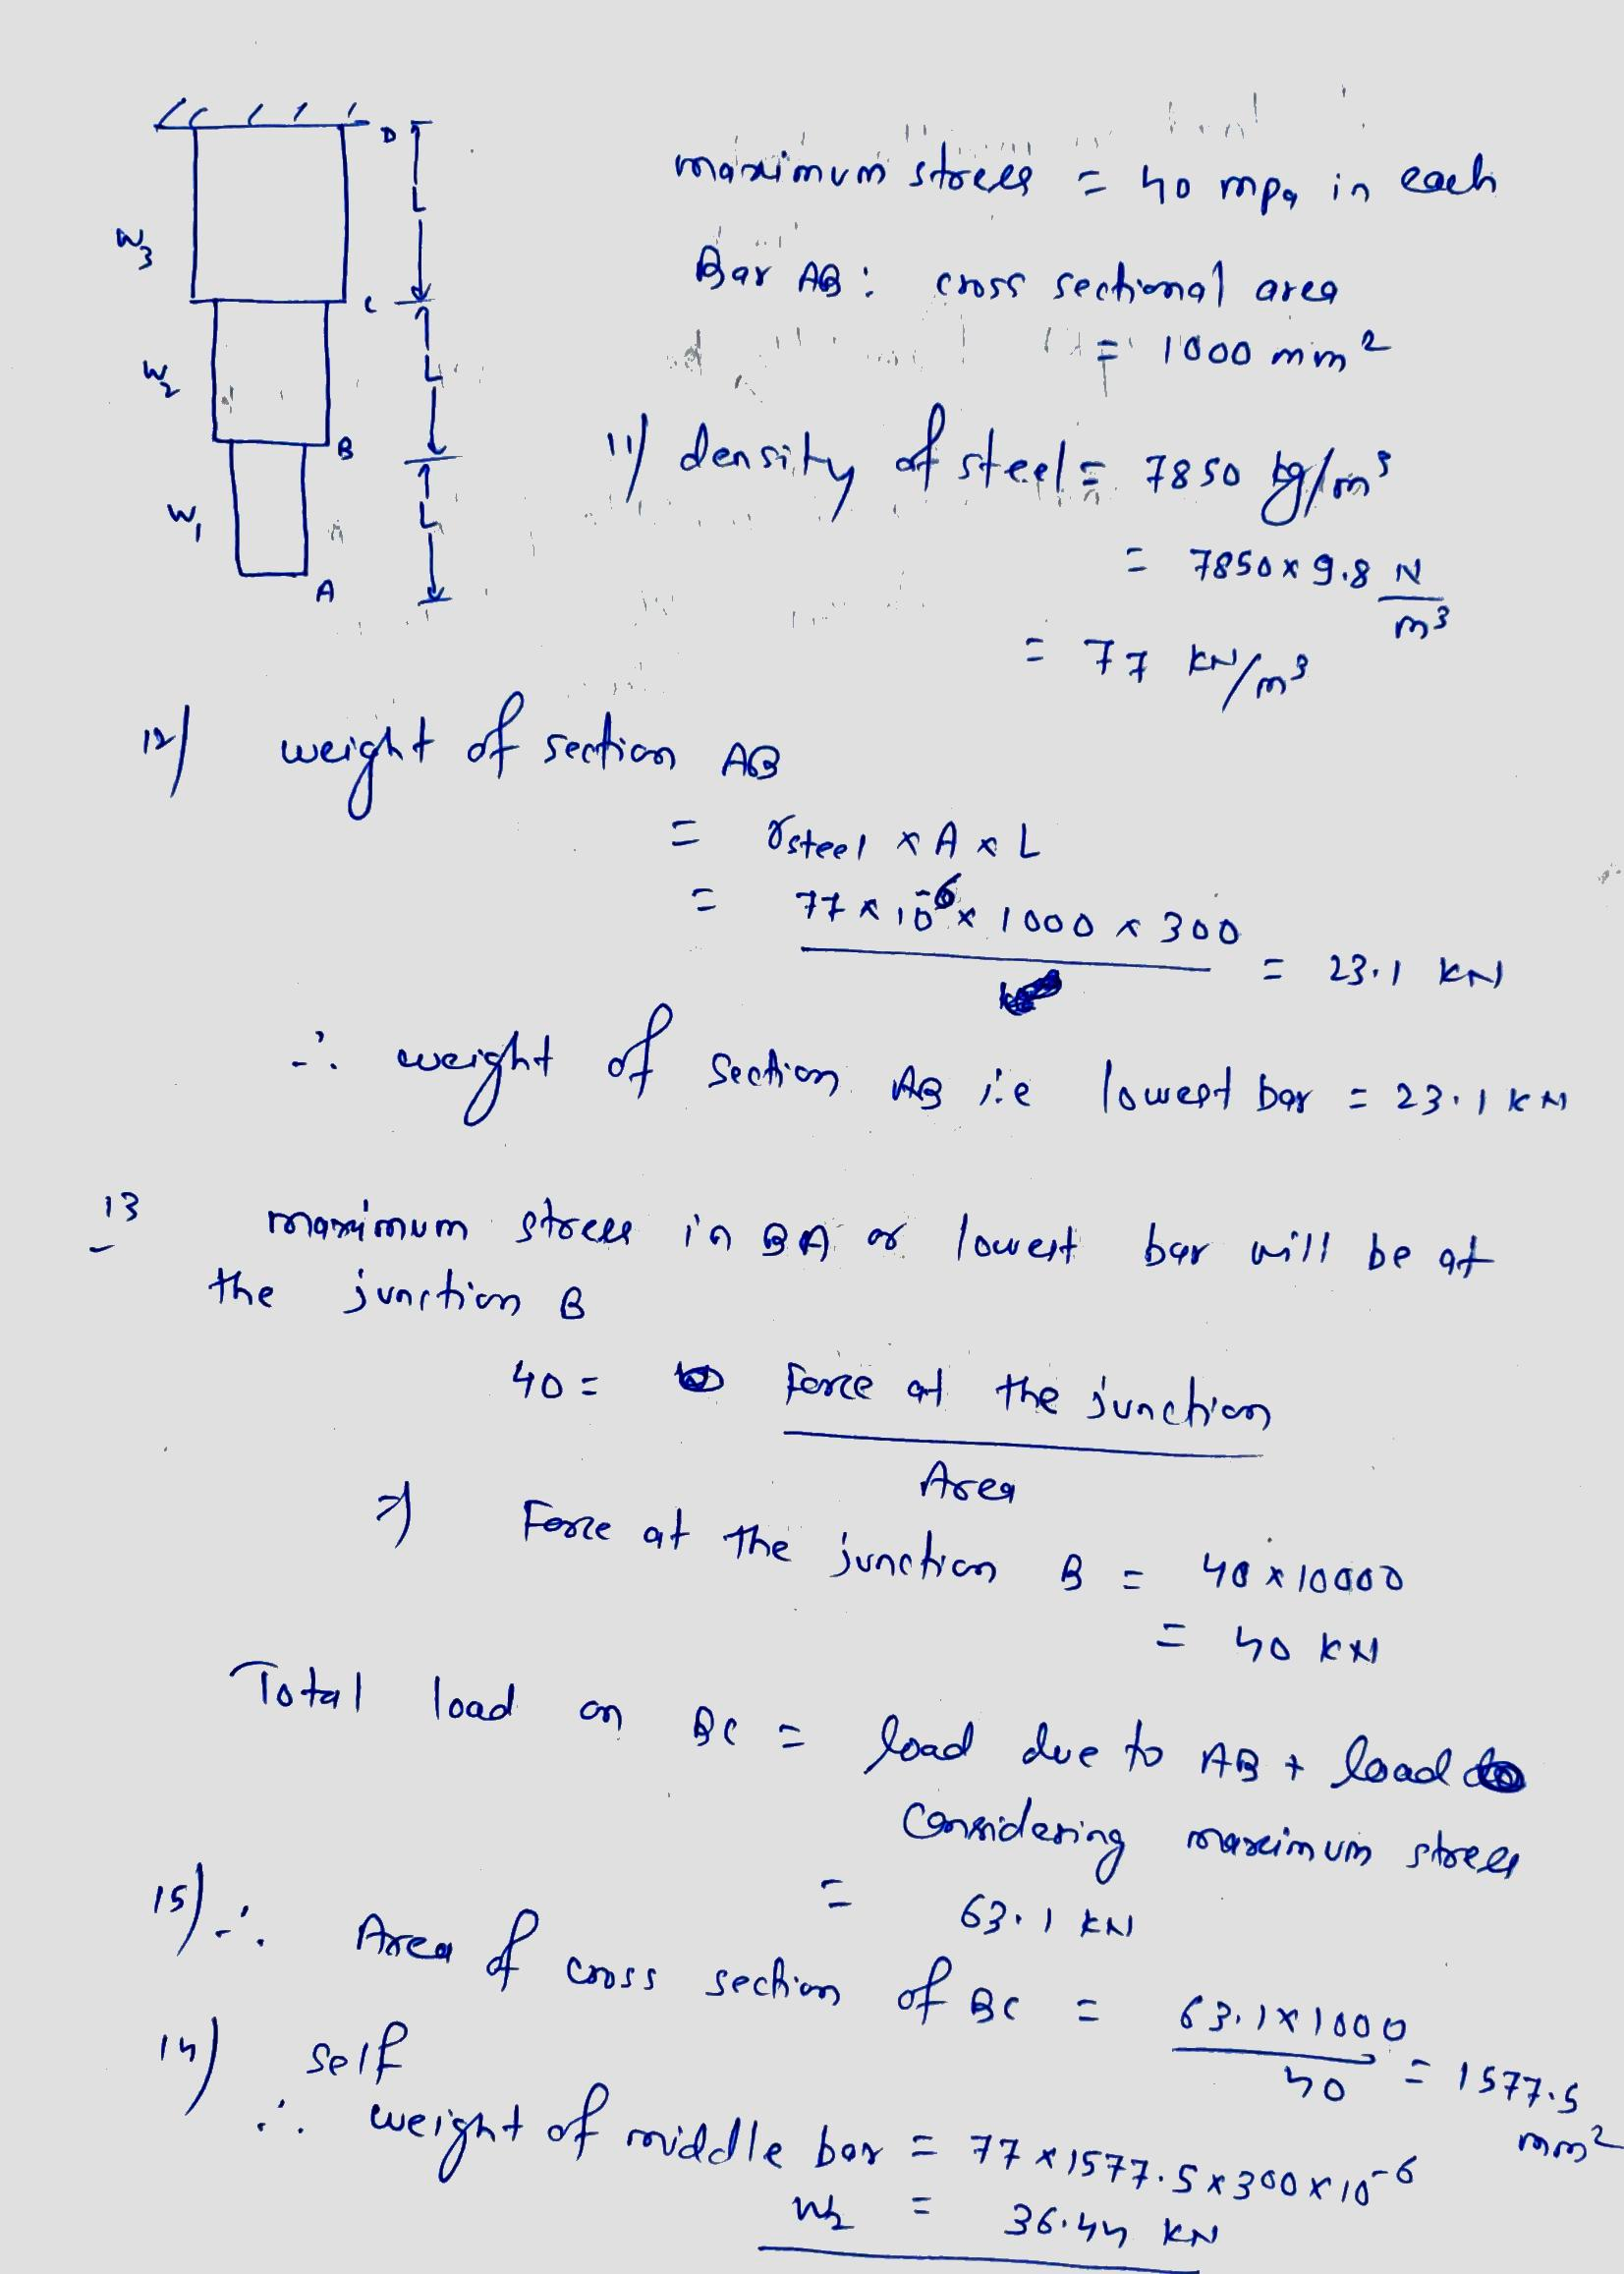 D
L
W3
C
L
W2
B
L
W1
A
maximum stress = 40 mpa in each
Bar AB: cross sectional area
= 1000 mm²
11) density of steel = 7850 kg/m³
= 7850 × 9.8 N/m³
= 77 KN/m³
12) weight of section AB
= γsteel × A × L
= 77 × 10⁻⁶ × 1000 × 300 = 23.1 KN
∴ weight of section AB i.e lowest bar = 23.1 KN
13 maximum stress in BA or lowest bar will be at
the junction B
40 = Force at the junction
Area
⇒ Force at the junction B = 40 × 10000
= 40 KN
Total load on BC = load due to AB + load
Considering maximum stress
= 63.1 KN
15) ∴ Area of cross section of BC = 63.1×1000/40 = 1577.5 mm²
14) self
∴ weight of middle bar = 77 × 1577.5 × 300 × 10⁻⁶
W2 = 36.44 KN